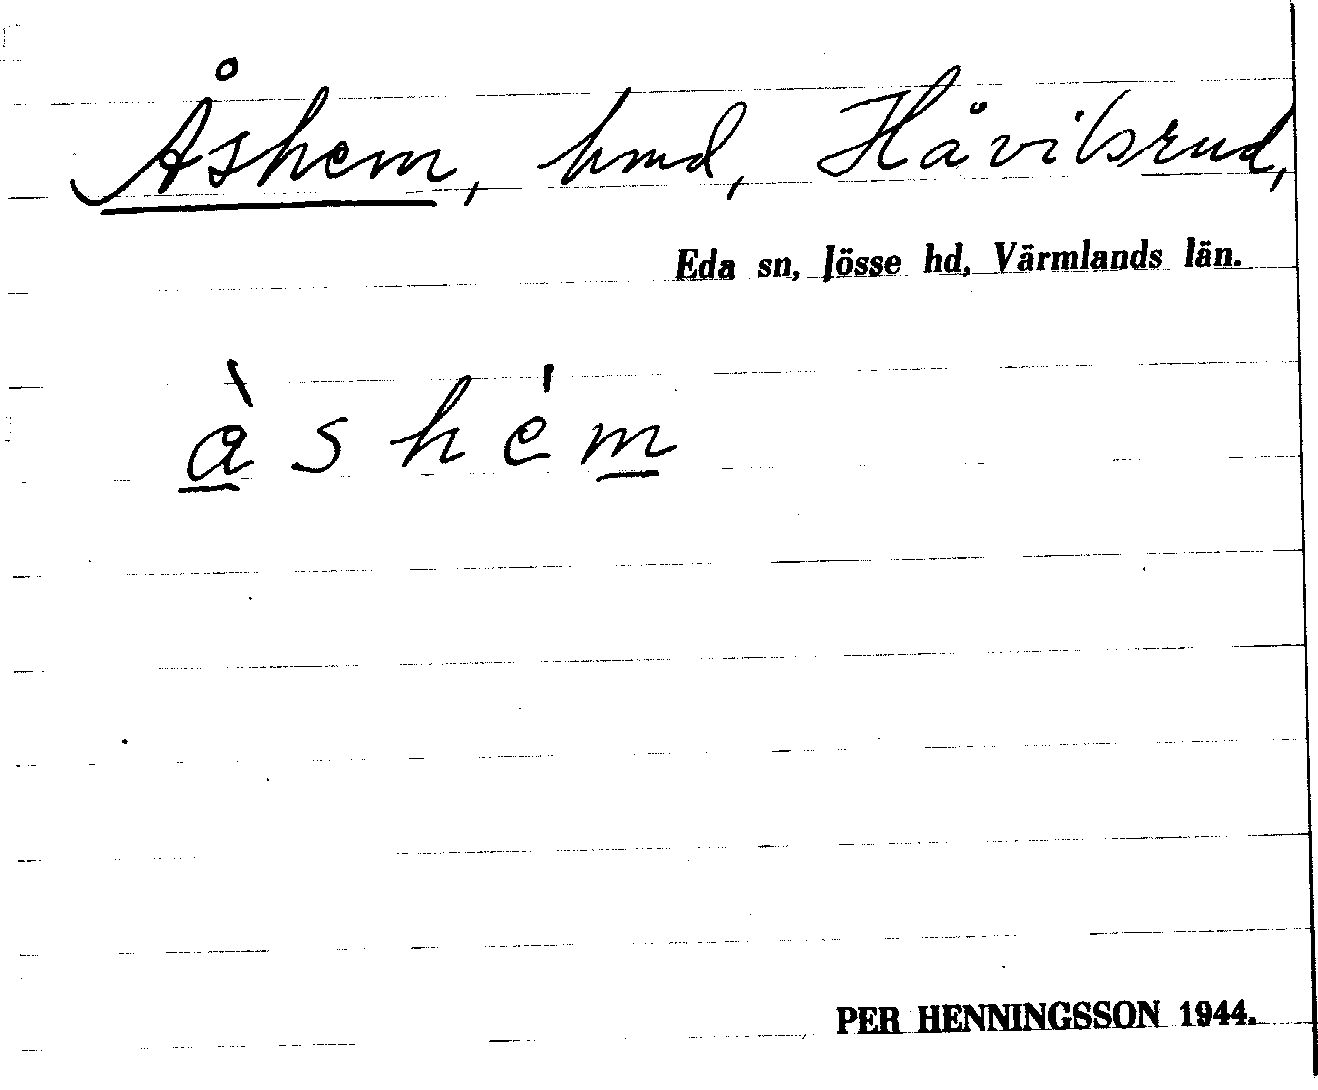 Åshem, hmd, Håvilsrud,
Eda sn, Jösse hd, Värmlands län.
àshém
PER HENNINGSSON 1944.